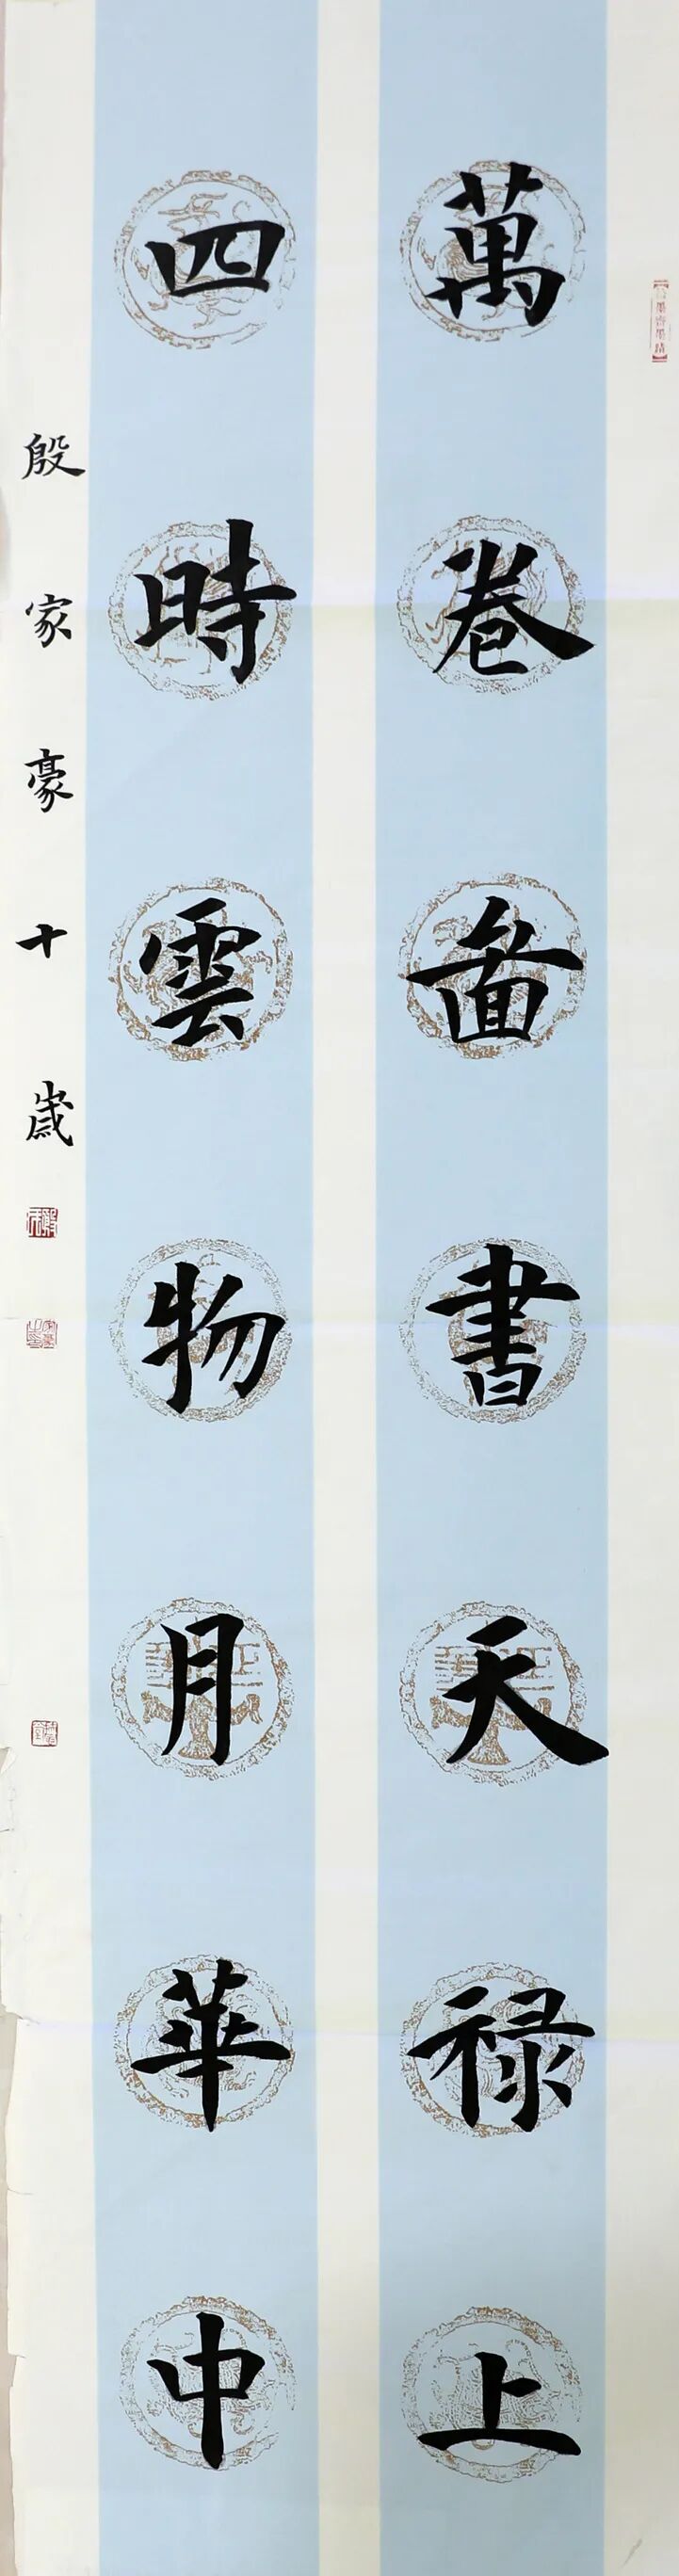 萬卷啚書天禄上
四時雲物月華中
殷家豪十歲